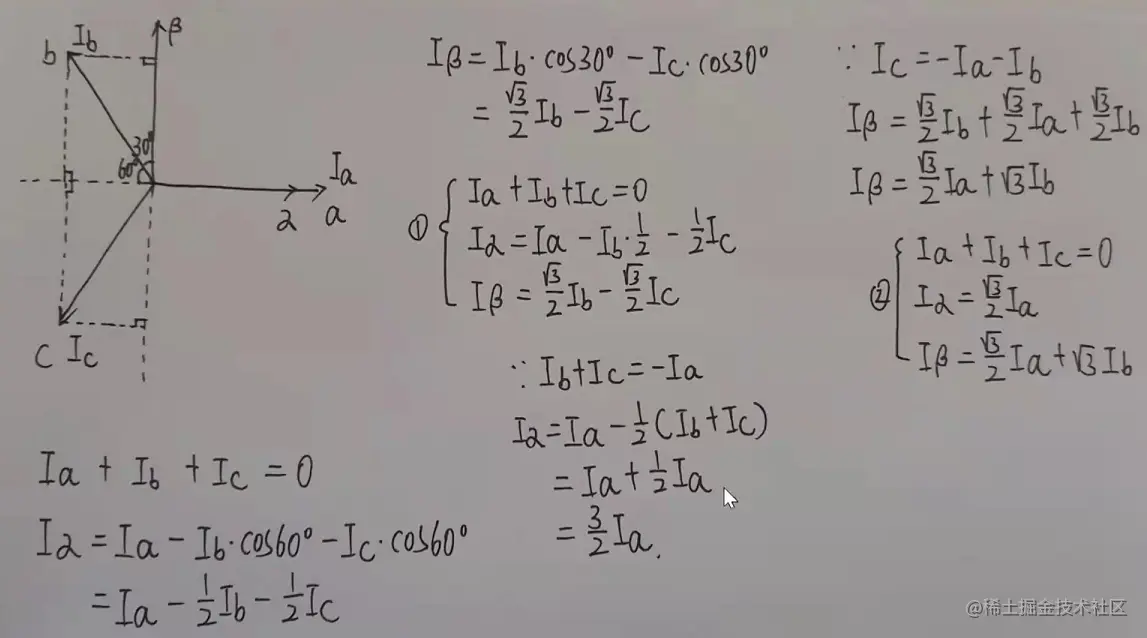 β
b Ib
30°
60°
Ia
α a
C Ic
Ia + Ib + Ic = 0
Iα = Ia - Ib·cos60° - Ic·cos60°
= Ia - 1/2 Ib - 1/2 Ic
Iβ = Ib·cos30° - Ic·cos30°
= √3/2 Ib - √3/2 Ic
① { Ia + Ib + Ic = 0
Iα = Ia - Ib·1/2 - 1/2 Ic
Iβ = √3/2 Ib - √3/2 Ic
∵ Ib + Ic = -Ia
Iα = Ia - 1/2 (Ib + Ic)
= Ia + 1/2 Ia
= 3/2 Ia.
∵ Ic = -Ia - Ib
Iβ = √3/2 Ib + √3/2 Ia + √3/2 Ib
Iβ = √3/2 Ia + √3 Ib
② { Ia + Ib + Ic = 0
Iα = √3/2 Ia
Iβ = √3/2 Ia + √3 Ib
@稀土掘金技术社区